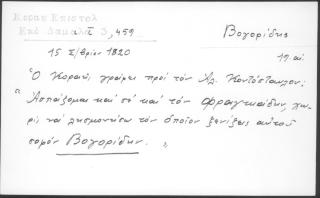 Κοραη Επιστολ
Εκδ Δαμαλᾶ 3, 459
Βογορίδης
15 7/βρίου 1820
19. αἰ.
Ὁ Κοραῆς γράφει πρὸς τὸν Ἀλ. Κοντόσταυλον:
"Ἀσπάζομαι καὶ σὲ καὶ τὸν Φραγκιάδην, χω-
ρὶς νὰ λησμονήσω τὸν ὁποῖον ξενίζεις αὐτοῦ
σοφὸν Βογορίδην. "